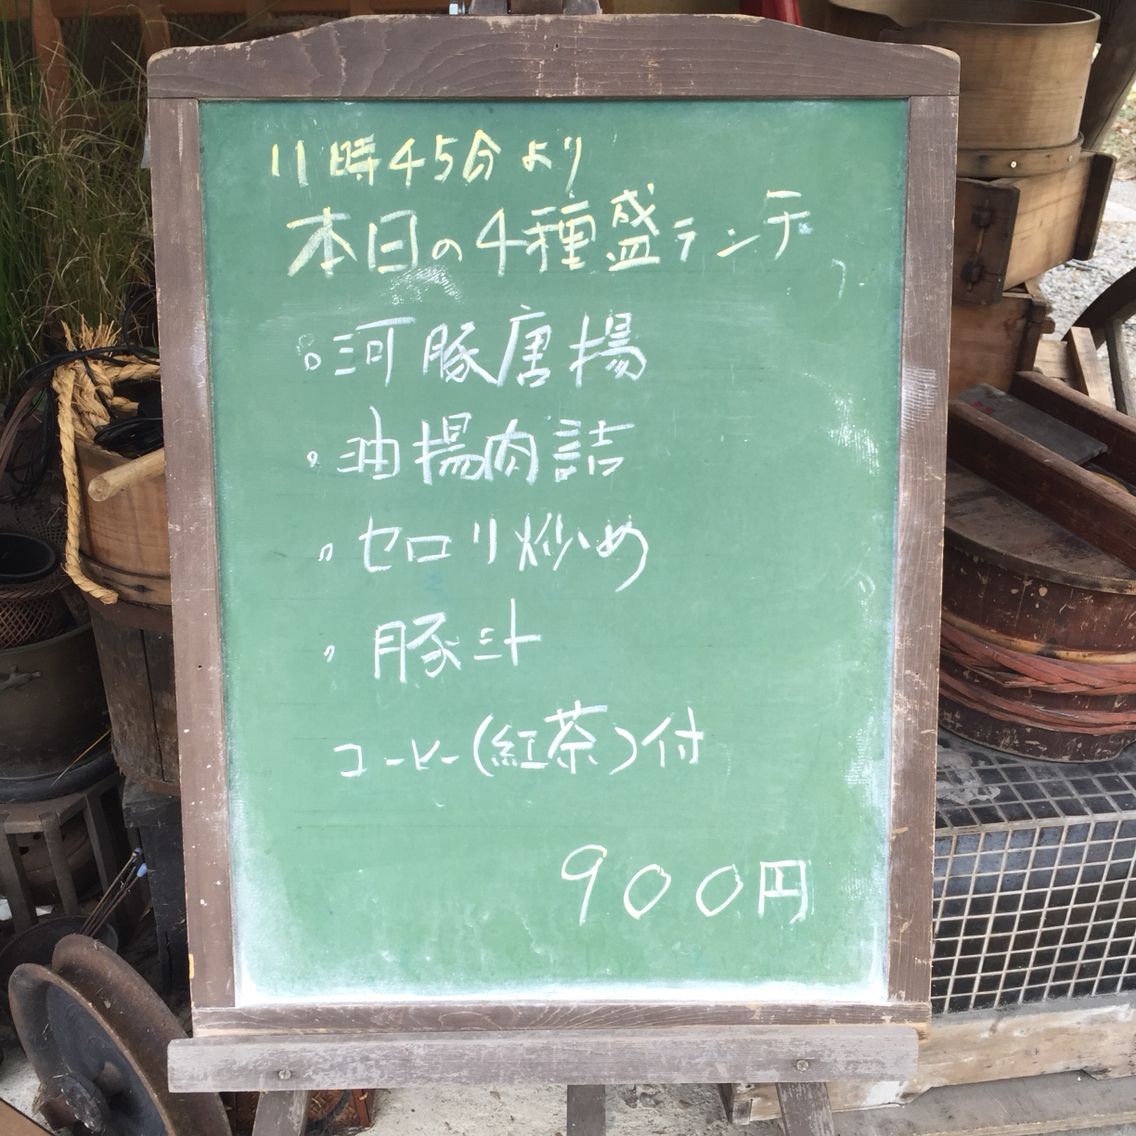 11時45分より
本日の4種盛ランチ
。河豚唐揚
。油揚肉詰
〃セロリ炒め
。豚汁
コーヒー(紅茶)付
900円